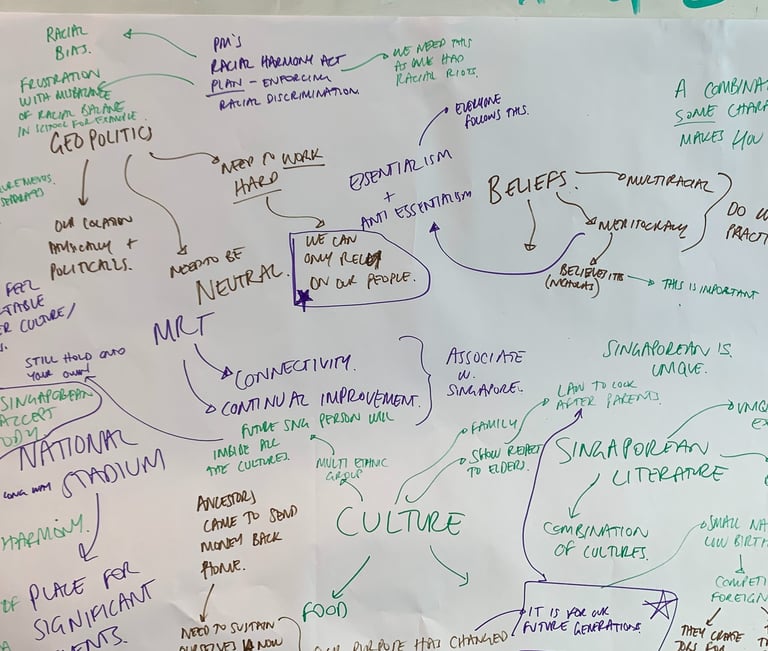 RACIAL
BIAS.
PM'S
RACIAL HARMONY ACT
PLAN - ENFORCING
RACIAL DISCRIMINATION
WE NEED THIS
AS WE HAD
RACIAL RIOTS.
FRUSTRATION
WITH
OF RACIAL BALANE
IN SCHOOL FOR EXAMPLE.
GEOPOLITICS
EVERYONE
FOLLOWS THIS.
A COMBINAT
SOME CHARA
MAKES YOU
NEED TO WORK
HARD
ESSENTIALISM
+
ANTI ESSENTIALISM
BELIEFS.
MULTIRACIAL
MERITOCRACY
DO W
PRACTI
UREMENTS.
OUR LOCATION
+
POLITICALLS.
NEED TO BE
NEUTRAL.
WE CAN
ONLY RELY
ON OUR PEOPLE.
BELIEVE IT
(NICHOLAS)
THIS IS IMPORTANT
FEEL
TABLE
ER CULTURE/
S.
MRT
CONNECTIVITY.
CONTINUAL IMPROVEMENT.
ASSOCIATE
W.
SINGAPORE.
STILL HOLD ONTO
YOUR OWN!
SINGAPOREAN
ACCEPT
ODY
SINGAPOREAN IS.
UNIQUE.
FUTURE SNG PERSON WILL
INSIDE ALL
THE CULTURES.
MULTI ETHNIC
GROUP
FAMILY
SHOW RESPECT
TO ELDERS.
LAW TO LOOK
AFTER PARENTS.
SINGAPOREAN
LITERATURE
UNIQ
EX
NATIONAL
LONG WAY STADIUM
ANCESTORS
CAME TO SEND
MONEY BACK
HOME.
CULTURE
COMBINATION
OF CULTURES.
SMALL NA
LOW BIRTH
HARMONY.
COMPETI
FOREIGN
OF PLACE FOR
SIGNIFICANT
ENTS.
FOOD
IT IS FOR OUR
FUTURE GENERATIONS.
NEED TO SUSTAIN
OURSELVES NOW
OUR PURPOSE HAS CHANGED
THEY CREATE
JOBS FOR